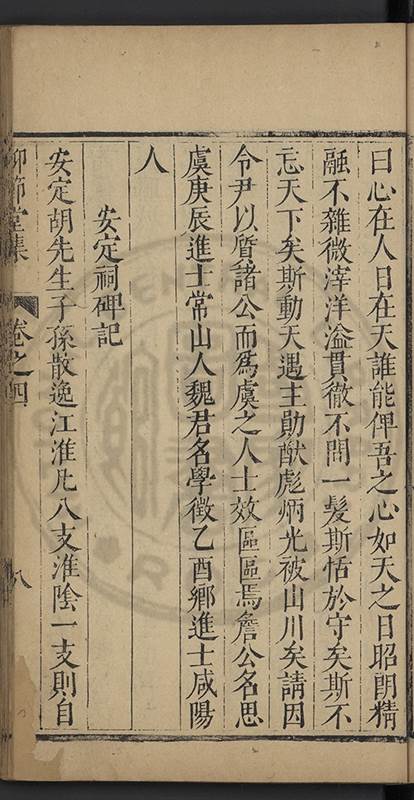 曰心在人日在天誰能俾吾之心如天之日昭朗精
融不雜微滓洋溢貫徹不間一髮斯恬於守矣斯不
忘天下矣斯動天遇主勛猷彪炳光被山川矣請因
令尹以質諸公而爲虞之人士效區區焉詹公名思
虞庚辰進士常山人魏君名學徵乙酉鄉進士咸陽
人
安定祠碑記
安定胡先生子孫散逸江淮凡八支淮陰一支則自
仰節堂集
卷之四
八